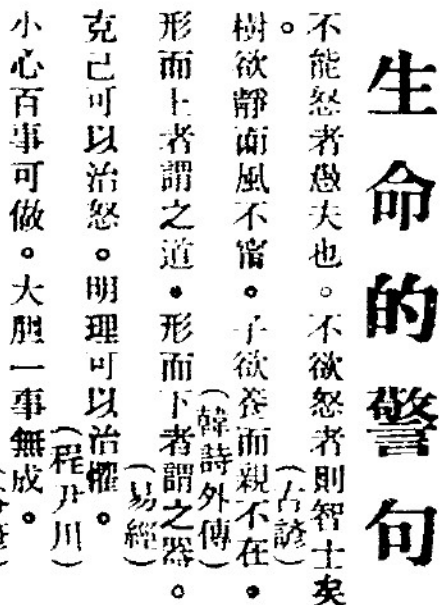 生命的警句
不能怒者愚夫也。不欲怒者則智士矣
。（古諺）
樹欲靜而風不甯。子欲養而親不在。
（韓詩外傳）
形而上者謂之道。形而下者謂之器。
（易經）
克己可以治怒。明理可以治懼。
（程尹川）
小心百事可做。大胆一事無成。